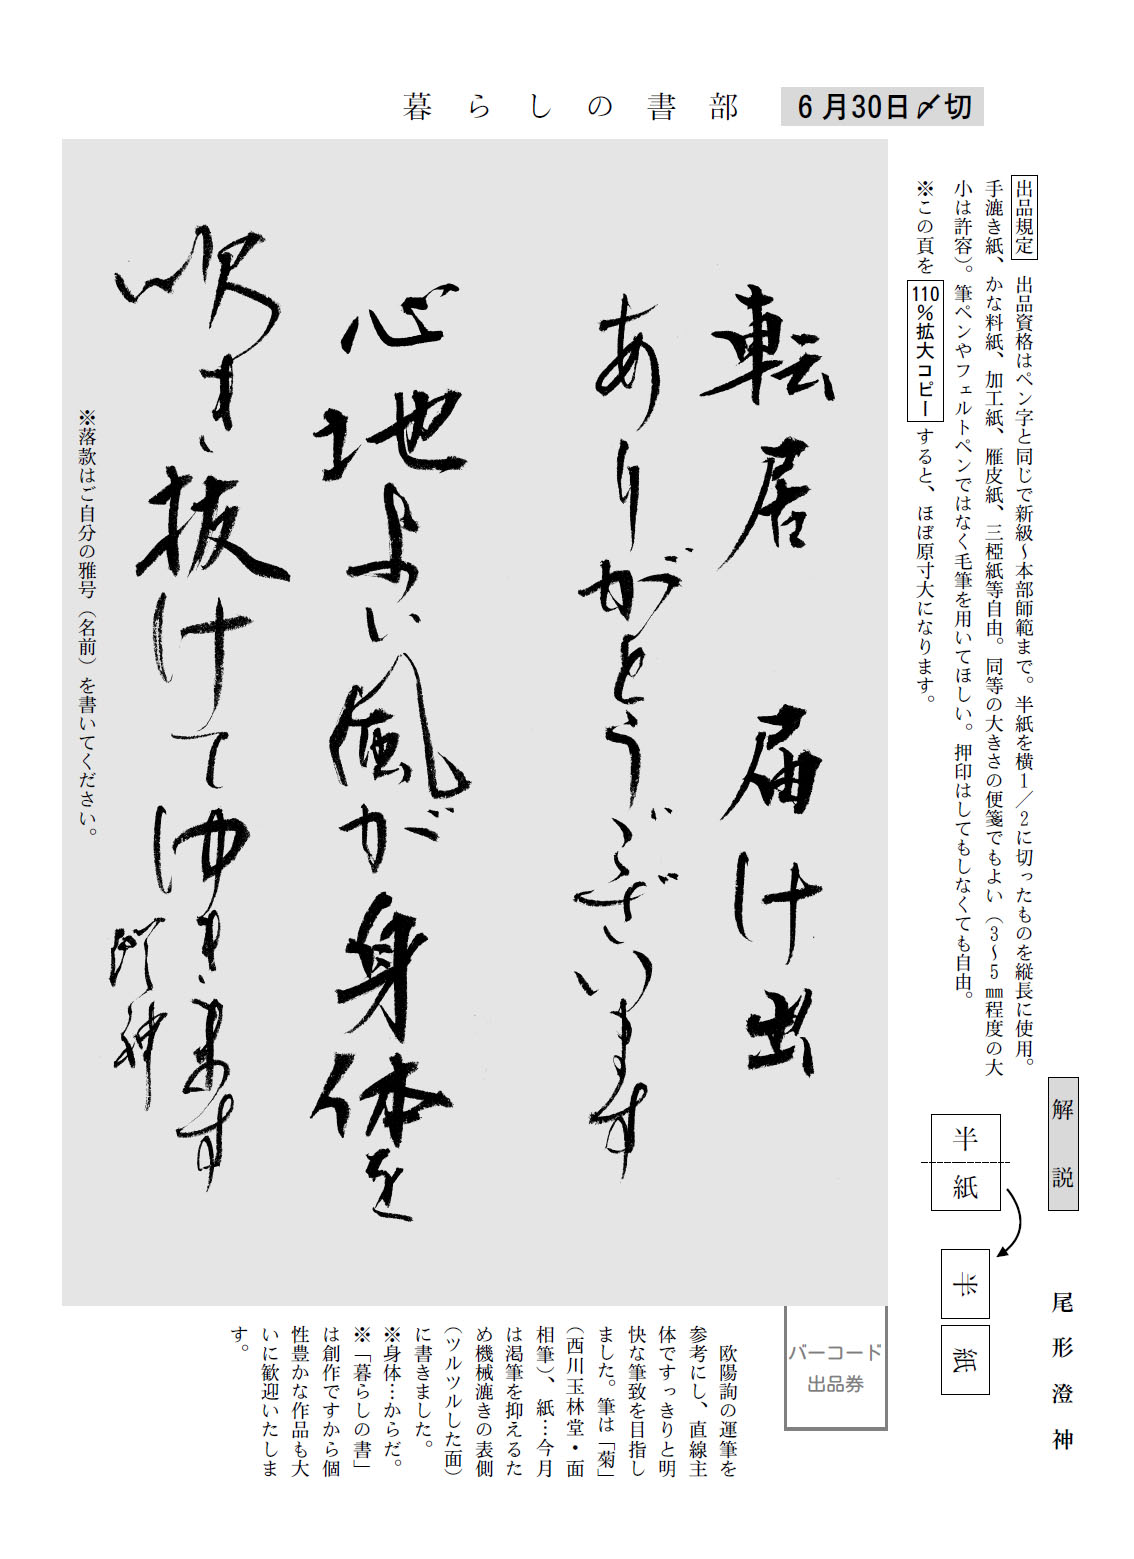 暮らしの書部
6月30日〆切
出品規定 出品資格はペン字と同じで新級～本部師範まで。半紙を横1／2に切ったものを縦長に使用。
手漉き紙、かな料紙、加工紙、雁皮紙、三椏紙等自由。同等の大きさの便箋でもよい（3～5㎜程度の大
小は許容）。筆ペンやフェルトペンではなく毛筆を用いてほしい。押印はしてもしなくても自由。
※この頁を110％拡大コピーすると、ほぼ原寸大になります。
解説
尾形澄神
半紙
半
紙
転居 届け出
ありがとうございます
心地よい風が身体を
吹き抜けてゆきます
澄神
※落款はご自分の雅号（名前）を書いてください。
バーコード
出品券
欧陽詢の運筆を
参考にし、直線主
体ですっきりと明
快な筆致を目指し
ました。筆は「菊」
（西川玉林堂・面
相筆）、紙…今月
は渇筆を抑えるた
め機械漉きの表側
（ツルツルした面）
に書きました。
※身体…からだ。
※「暮らしの書」
は創作ですから個
性豊かな作品も大
いに歓迎いたしま
す。